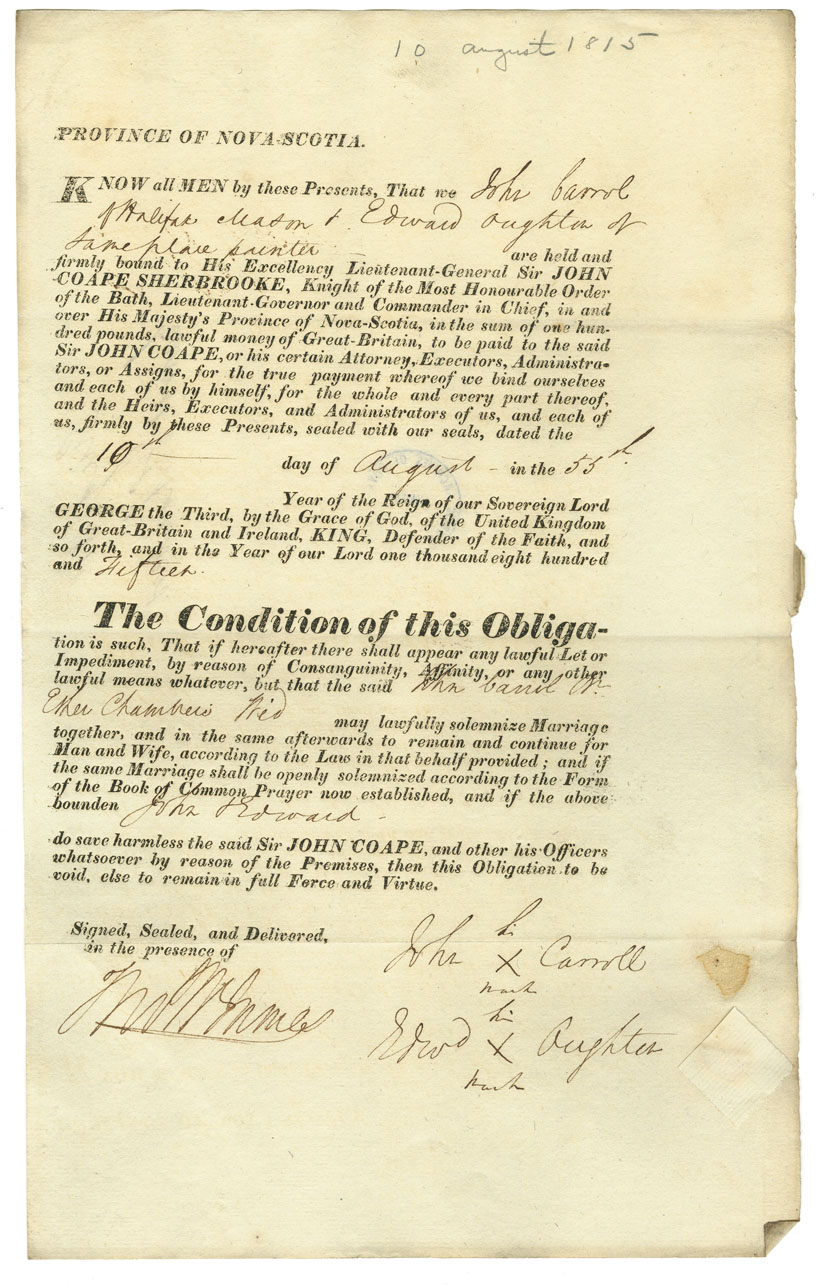 10 august 1815
PROVINCE OF NOVA-SCOTIA.
KNOW all MEN by these Presents, That we John Carrol
of Halifax Mason & Edward Oughton of
Same place painter are held and
firmly bound to His Excellency Lieutenant-General Sir JOHN
COAPE SHERBROOKE, Knight of the Most Honourable Order
of the Bath, Lieutenant-Governor and Commander in Chief, in and
over His Majesty's Province of Nova-Scotia, in the sum of one hun-
dred pounds, lawful money of Great-Britain, to be paid to the said
Sir JOHN COAPE, or his certain Attorney, Executors, Administra-
tors, or Assigns, for the true payment whereof we bind ourselves
and each of us by himself, for the whole and every part thereof,
and the Heirs, Executors, and Administrators of us, and each of
us, firmly by these Presents, sealed with our seals, dated the
10th day of August - in the 55th
Year of the Reign of our Sovereign Lord
GEORGE the Third, by the Grace of God, of the United Kingdom
of Great-Britain and Ireland, KING, Defender of the Faith, and
so forth, and in the Year of our Lord one thousand eight hundred
and Fifteen.
The Condition of this Obliga-
tion is such, That if hereafter there shall appear any lawful Let or
Impediment, by reason of Consanguinity, Affinity, or any other
lawful means whatever, but that the said John Carrol
Chambers Wid may lawfully solemnize Marriage
together, and in the same afterwards to remain and continue for
Man and Wife, according to the Law in that behalf provided; and if
the same Marriage shall be openly solemnized according to the Form
of the Book of Common Prayer now established, and if the above
bounden John & Edward -
do save harmless the said Sir JOHN COAPE, and other his Officers
whatsoever by reason of the Premises, then this Obligation to be
void, else to remain in full Force and Virtue.
Signed, Sealed, and Delivered,
in the presence of
his
John X Carroll
mark
his
Edwd X Oughton
mark